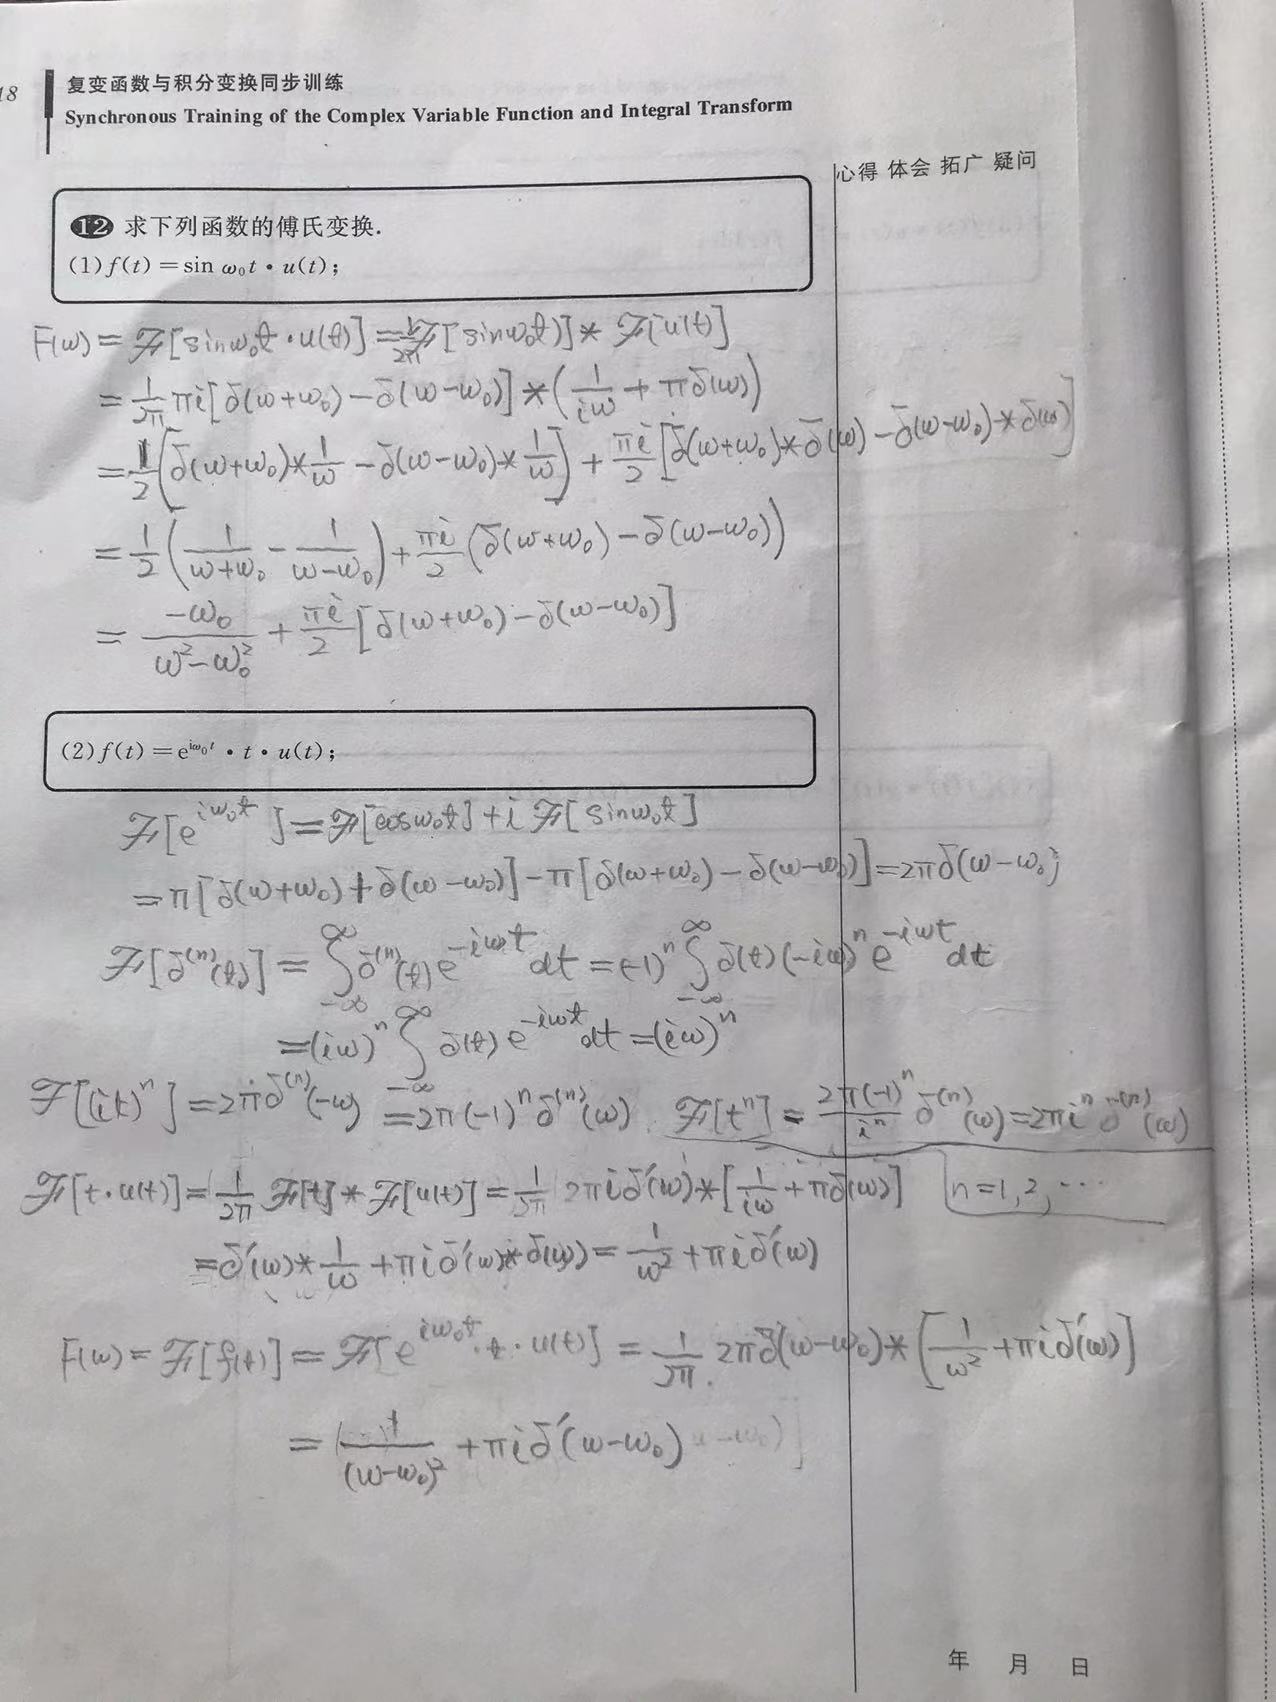 18
复变函数与积分变换同步训练
Synchronous Training of the Complex Variable Function and Integral Transform
心得 体会 拓广 疑问
12 求下列函数的傅氏变换.
(1) f(t)=sin ω₀t·u(t);
F(ω) = ℱ[sinω₀t·u(t)] = 1/2π ℱ[sinω₀t)] * ℱ[u(t)]
= 1/2π πi[δ(ω+ω₀)-δ(ω-ω₀)] * (1/iω + πδ(ω))
= 1/2 [δ(ω+ω₀)*1/ω - δ(ω-ω₀)*1/ω] + πi/2 [δ(ω+ω₀)*δ(ω) - δ(ω-ω₀)*δ(ω)]
= 1/2 (1/(ω+ω₀) - 1/(ω-ω₀)) + πi/2 (δ(ω+ω₀)-δ(ω-ω₀))
= -ω₀/(ω²-ω₀²) + πi/2 [δ(ω+ω₀)-δ(ω-ω₀)]
(2) f(t)=e^{iω₀t}·t·u(t);
ℱ[e^{iω₀t}] = ℱ[cosω₀t] + i ℱ[sinω₀t]
= π[δ(ω+ω₀)+δ(ω-ω₀)] - π[δ(ω+ω₀)-δ(ω-ω₀)] = 2πδ(ω-ω₀)
ℱ[δ⁽ⁿ⁾(t)] = ∫_{-∞}^{∞} δ⁽ⁿ⁾(t) e^{-iωt} dt = (-1)ⁿ ∫_{-∞}^{∞} δ(t)(-iω)ⁿ e^{-iωt} dt
= (iω)ⁿ ∫_{-∞}^{∞} δ(t) e^{-iωt} dt = (iω)ⁿ
ℱ[(it)ⁿ] = 2πδ⁽ⁿ⁾(-ω) = 2π(-1)ⁿ δ⁽ⁿ⁾(ω). ℱ[tⁿ] = 2π(-1)ⁿ/iⁿ δ⁽ⁿ⁾(ω) = 2πiⁿ δ⁽ⁿ⁾(ω)
ℱ[t·u(t)] = 1/2π ℱ[t] * ℱ[u(t)] = 1/2π 2πiδ′(ω) * [1/iω + πδ(ω)] n=1,2,…
= δ′(ω)*1/ω + πiδ′(ω)*δ(ω) = -1/ω² + πiδ′(ω)
F(ω) = ℱ[f(t)] = ℱ[e^{iω₀t}·t·u(t)] = 1/2π 2πδ(ω-ω₀) * [-1/ω² + πiδ′(ω)]
= -1/(ω-ω₀)² + πiδ′(ω-ω₀)
年 月 日